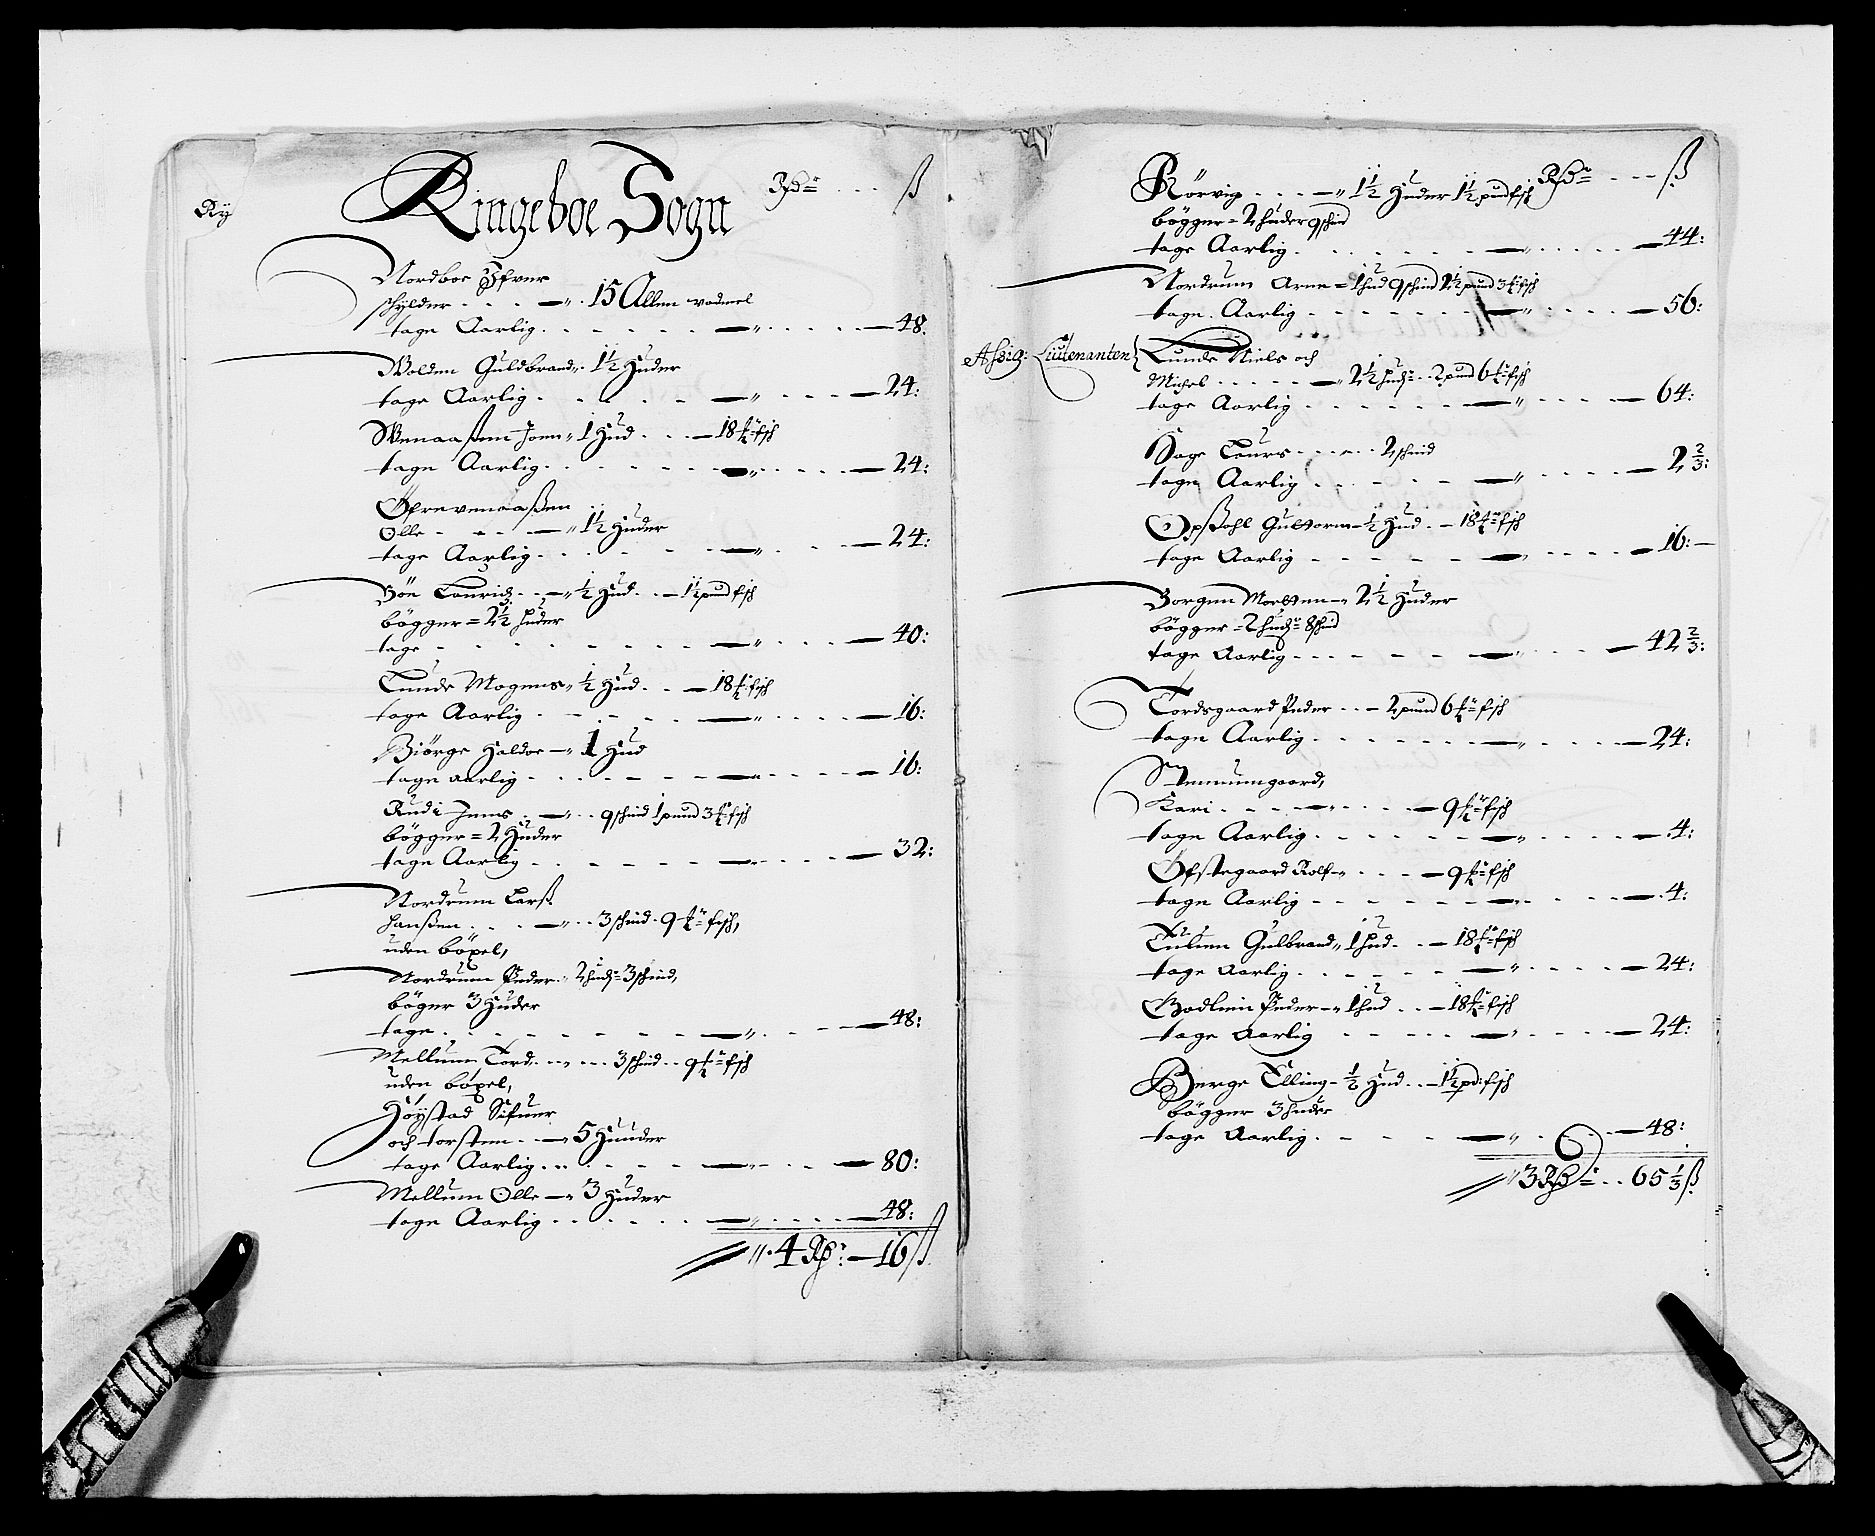 Ry
Ringeboe Sogn Rsd ß
Nordboe Ifver
schylder 15 Allen vadmel
tage Aarlig 48.
Wolden Guldbrand 1½ Huder
tage Aarlig 24:
Wenaaßen Joen 1 Hud 18 fisch
tage Aarlig 24:
Øfrevenaaßen
Olle 1½ Huder
tage Aarlig 24:
Böe Lauridz ½ Hud 1½ pund fisch
böxger = 2½ huder
tage 40:
Lunde Mogens ½ Hud 18 fisch
tage Aarlig 16:
Biörge Haldor 1 Hud
tage aarlig 16:
Rudi Jens 9 schind 1 pund 3 fisch
böxger = 2 Huder
tage Aarlig 32:
Nordrum Larß
Hanßen 3 schind 9 fisch,
uden böxel,
Nordrum Peder 2 hudr 3 schind,
böxger 3 Huder
tage 48:
Mellum Tord 3 schind 9 fisch
uden böxel,
Höystad Sifuer
och torsten 5 Huuder
tage Aarlig 80:
Mellum Olle 3 Huder
tage Aarlig 48:
4 Rß: 16 ß
Rörvig 1½ Huder 1½ pund fisch Rsd ß
böxger = 2 huder 9 schind
tage Aarlig 44:
Nordrum Arne = 1 hud 9 schind 1½ pund 3 fisch
tage Aarlig 56:
Assig: Liutenanten
Lunde Niels och
Michel 2½ hudr 2 pund 6 fisch
tage Aarlig 64:
Hage Laurs 2 schind
tage Aarlig 2⅔:
Opßahl Guttorm ½ Hud 18 fisch
tage Aarlig 16:
Borgen Morten 2½ Huder
böxger 2 hudr 8 schind
tage Aarlig 42⅔:
Tordsgaard Peder 2 pund 6 fisch
tage Aarlig 24:
Kari 9 fisch
tage Aarlig 4:
Øfstegaard Rolf 9 fisch
tage Aarlig 4:
Gulbrand 1 Hud 18 fisch
tage Aarlig 24:
Peder 1 hud 18 fisch
tage Aarlig 24:
Berge Elling ½ Hud 1½ pd: fisch
böxger 3 huder
tage Aarlig 48:
3 Rß 65⅓ ß